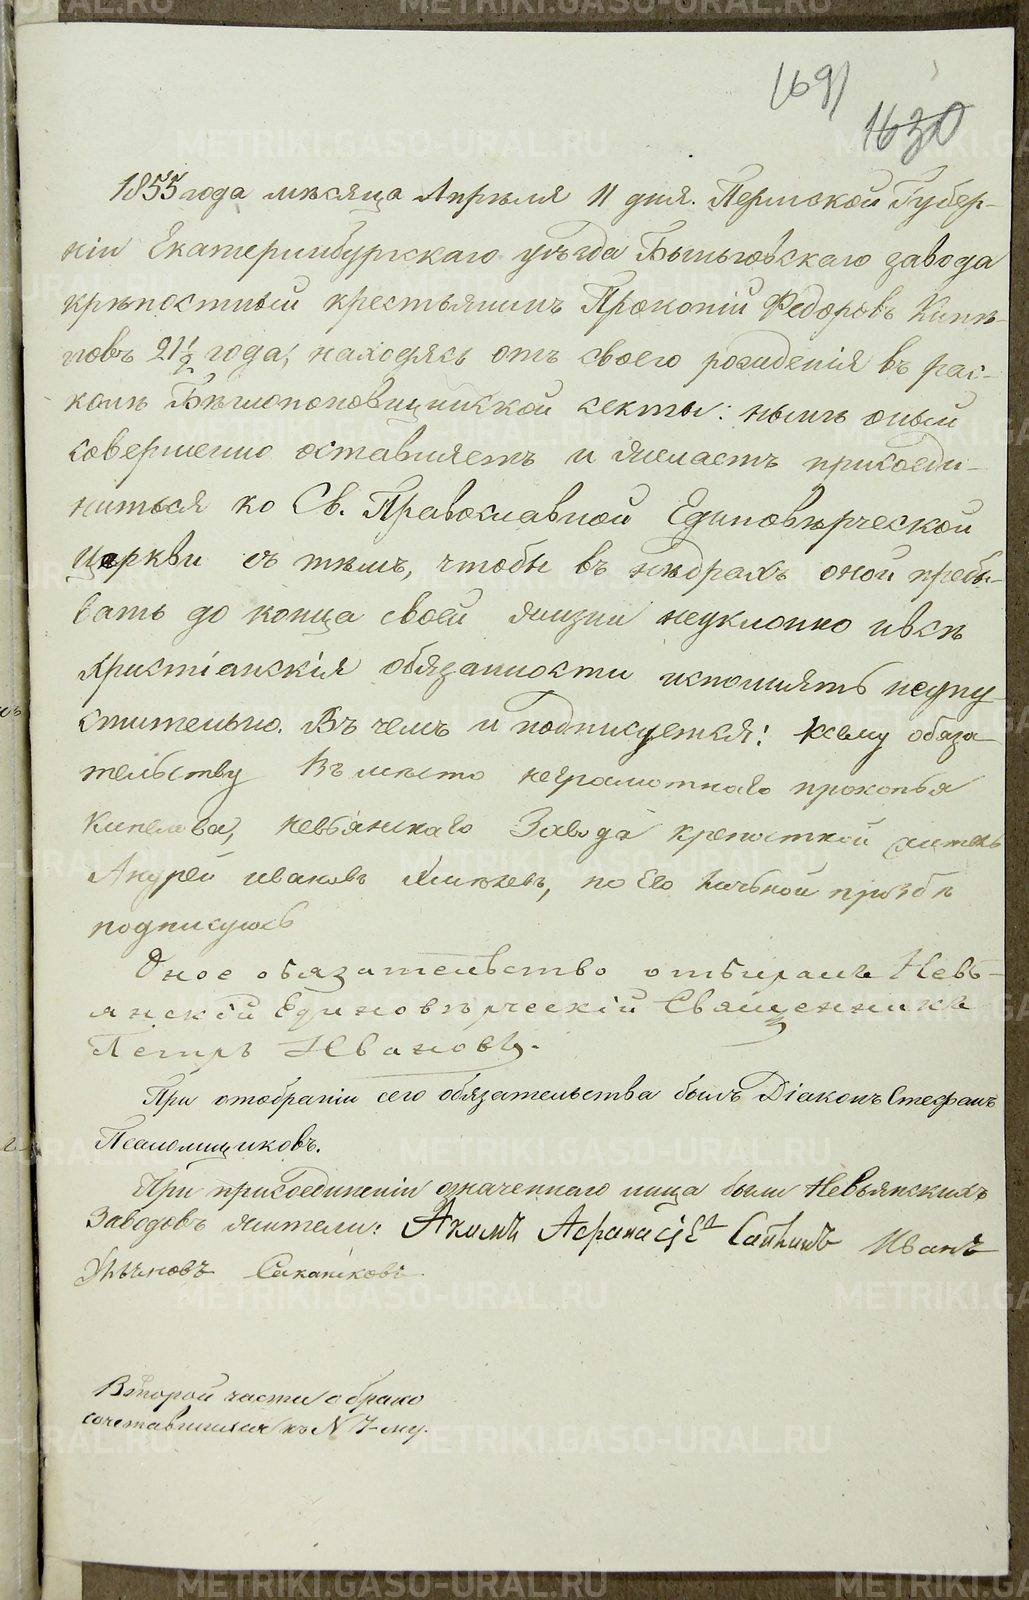 1691
1630
1855 года мѣсяца Апрѣля 11 дня. Пермской Губер-
ніи Екатеринбургскаго уѣзда Быньговскаго завода
крѣпостный крестьянинъ Прокопій Федоровъ Кипѣ-
ловъ 21½ года, находясь отъ своего рожденія въ рас-
колѣ Бѣглопоповщинской секты: нынѣ оный
совершенно оставляетъ и желаетъ присоеди-
ниться ко Св. Православной Единовѣрческой
Церкви съ тѣмъ, чтобы въ нѣдрахъ оной пребы-
вать до конца своей жизни неуклонно и всѣ
Христіанскія обязанности исполнять неупу-
стительно. Въ чемъ и подписуется: Ксему обяза-
тельству Вместо неграмотнаго прокопья
Кипелова, невьянскаго Завода крепостной житель
Андрей ивановъ по Его личьной прозбѣ
подписуюсь
Оное обязательство отбиралъ Невь-
янскій Единовѣрческій Священникъ
Петръ Ивановъ.
При отобраніи сего обязательства былъ Діаконъ Стефанъ
Псаломщиковъ.
При присоединеніи означеннаго лица были Невьянскихъ
Заводовъ жители: Акимъ Афанасіеъ Иванъ
METRIKI.GASO-URAL.RU
Второй части о брако
сочетавшихся къ N 7-му.